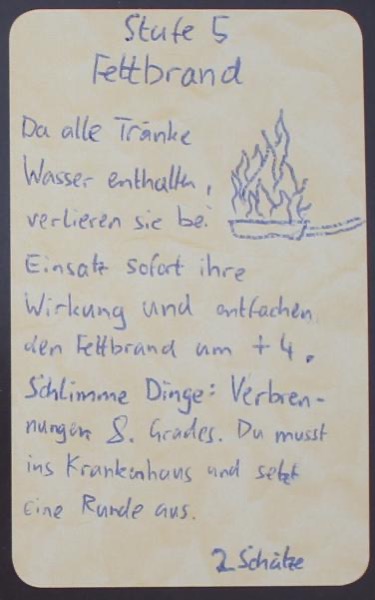 Stufe 5
Fettbrand
Da alle Tränke
Wasser enthalten,
verlieren sie bei
Einsatz sofort ihre
Wirkung und entfachen
den Fettbrand um +4.
Schlimme Dinge: Verbren-
nungen 8. Grades. Du musst
ins Krankenhaus und setzt
eine Runde aus.
2 Schätze